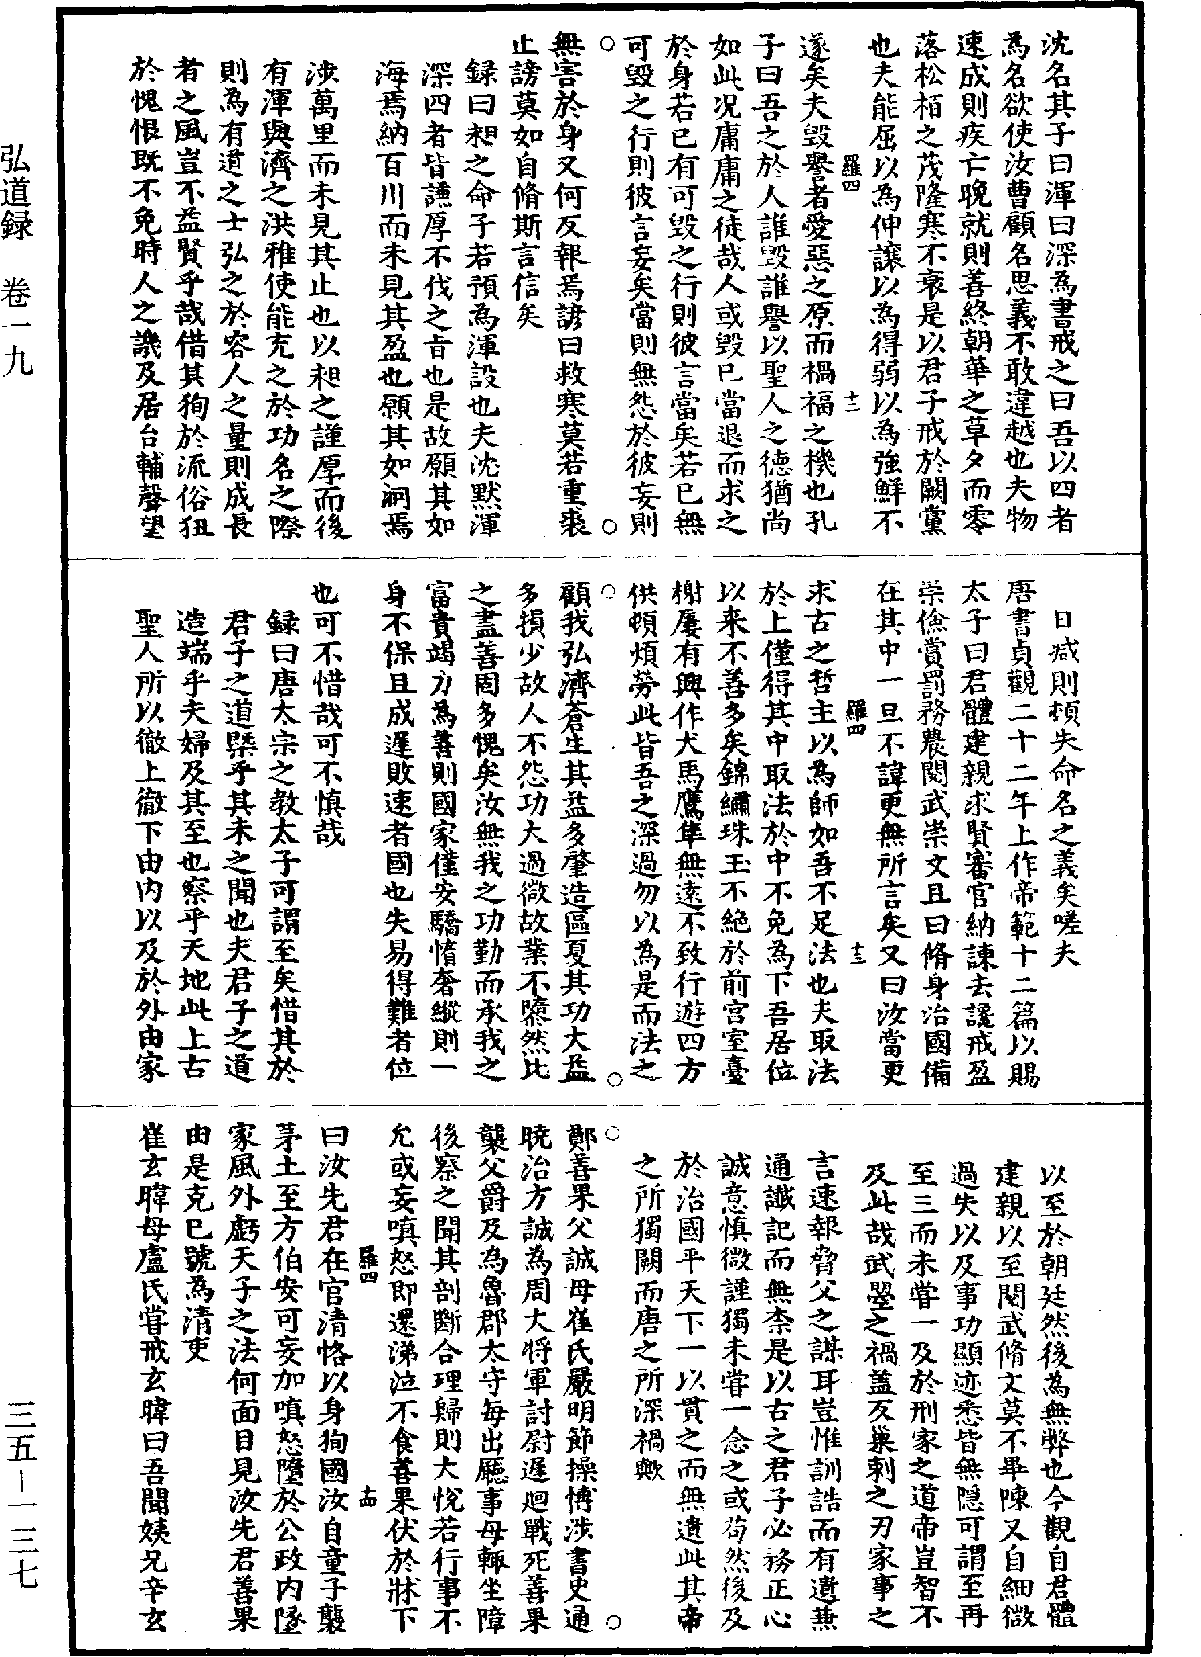 沈名其子曰渾曰深為書戒之曰吾以四者
為名欲使汝曹顧名思義不敢違越也夫物
速成則疾亡晚就則善終朝華之草夕而零
落松栢之茂隆寒不衰是以君子戒於闕黨
也夫能屈以為伸讓以為得弱以為強鮮不
羅四 十二
遂矣夫毀譽者愛惡之原而禍福之機也孔
子曰吾之於人誰毀誰譽以聖人之德猶尚
如此況庸庸之徒哉人或毀已當退而求之
於身若已有可毀之行則彼言當矣若已無
可毀之行則彼言妄矣當則無怨於彼妄則
○ ○
無害於身又何反報焉諺曰救寒莫若重裘
止謗莫如自脩斯言信矣
錄曰昶之命子若預為渾設也夫沈默渾
深四者皆謙厚不伐之旨也是故願其如
海焉納百川而未見其盈也願其如洞焉
涉萬里而未見其止也以昶之謹厚而後
有渾與濟之洪雅使能充之於功名之際
則為有道之士弘之於容人之量則成長
者之風豈不益賢乎哉借其狥於流俗狃
於愧恨既不免時人之譏及居台輔聲望
日咸則頓失命名之義矣嗟夫
唐書貞觀二十二年上作帝範十二篇以賜
太子曰君體建親求賢審官納諫去讒戒盈
崇儉賞罰務農閱武崇文且曰脩身治國備
在其中一旦不諱更無所言矣又曰汝當更
羅四 十三
求古之哲主以為師如吾不足法也夫取法
於上僅得其中取法於中不免為下吾居位
以來不善多矣錦繡珠玉不絕於前宮室臺
榭屢有興作犬馬鷹隼無遠不致行遊四方
供頓煩勞此皆吾之深過勿以為是而法之
○ ○
顧我弘濟蒼生其益多肇造區夏其功大益
多損少故人不怨功大過微故業不隳然比
之盡善固多愧矣汝無我之功勤而承我之
富貴竭力為善則國家僅安驕惰奢縱則一
身不保且成遲敗速者國也失易得難者位
也可不惜哉可不慎哉
錄曰唐太宗之教太子可謂至矣惜其於
君子之道槩乎其未之聞也夫君子之道
造端乎夫婦及其至也察乎天地此上古
聖人所以徹上徹下由內以及於外由家
以至於朝廷然後為無弊也今觀自君體
建親以至閱武脩文莫不畢陳又自細微
過失以及事功顯迹悉皆無隱可謂至再
至三而未嘗一及於刑家之道帝豈智不
及此哉武曌之禍蓋亥巢刺之刃家事之
言速報脅父之謀耳豈惟訓誥而有遺兼
通讖記而無柰是以古之君子必務正心
誠意慎微謹獨未嘗一念之或苟然後及
於治國平天下一以貫之而無遺此其帝
之所獨闕而唐之所深禍歟
○ ○
鄭善果父誠母崔氏嚴明節操博涉書史通
曉治方誠為周大將軍討尉遲迥戰死善果
襲父爵及為魯郡太守每出廳事母輒坐障
後察之聞其剖斷合理歸則大悅若行事不
允或妄嗔怒即還涕泣不食善果伏於牀下
羅四 十四
曰汝先君在官清恪以身狥國汝自童子襲
茅土至方伯安可妄加嗔怒墮於公政內墜
家風外虧天子之法何面目見汝先君善果
由是克巳號為清吏
崔玄暐母盧氏嘗戒玄暐曰吾聞姨兄辛玄
弘道録 卷一九
三五－一三七